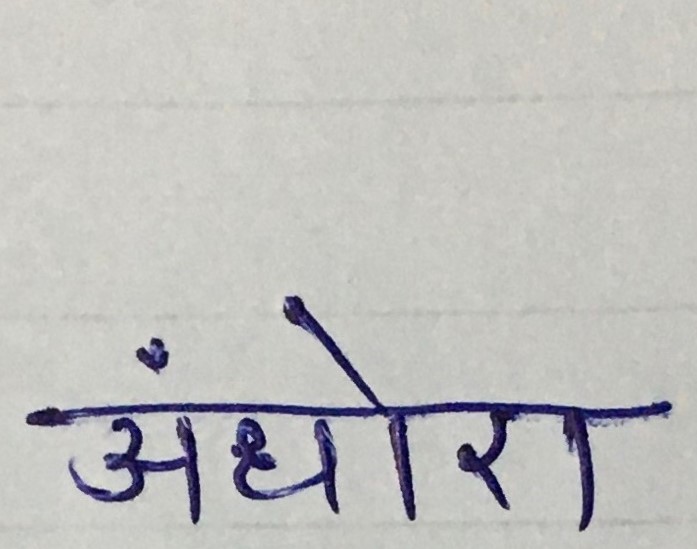 अंधोरा